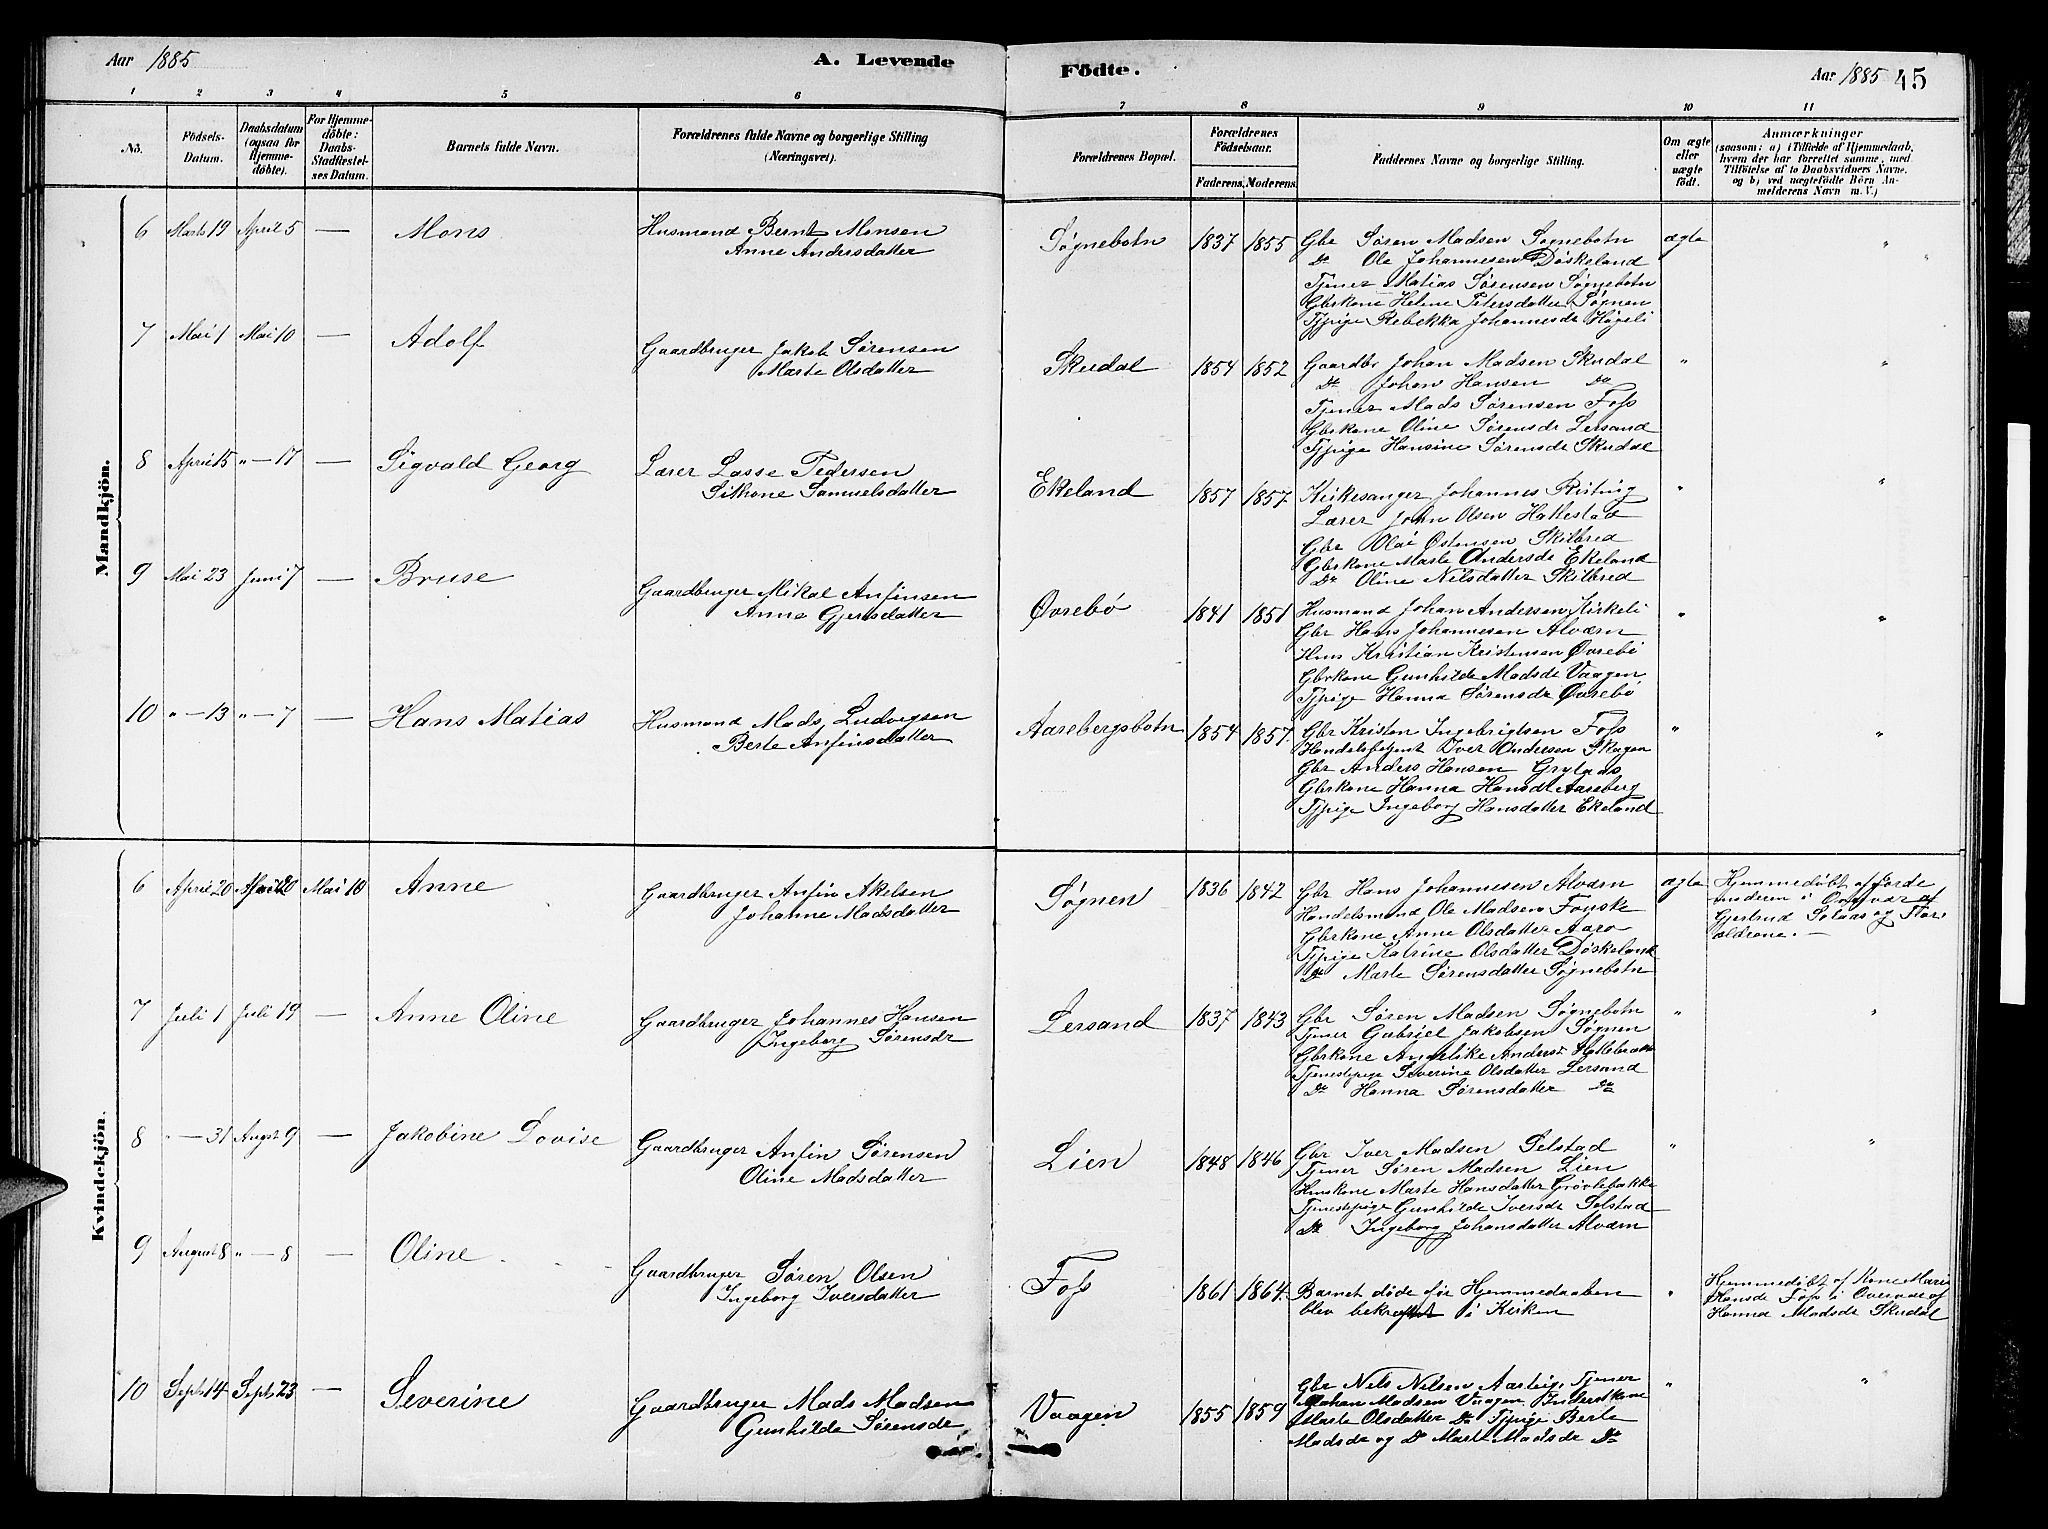 Aar 1885
A. Levende
Födte.
Aar 1885
45
1 2 3 4 5 6 7 8 9 10 11
No.
Födsels-
Datum.
Daabsdatum
(ogsaa for
Hjemme-
döbte).
For Hjemme-
döbte:
Daabs-
Stadfæstel-
ses Datum.
Barnets fulde Navn.
Forældrenes fulde Navne og borgerlige Stilling
(Næringsvei).
Forældrenes Bopæl.
Forældrenes
Födselsaar.
Faderens. Moderens.
Faddernes Navne og borgerlige Stilling.
Om ægte
eller
uægte
födt.
Anmærkninger
(saasom: a) i Tilfælde af Hjemmedaab,
hvem der har forrettet samme, med
Tilföielse af to Daabsvidners Navne,
og b) ved uægtefödte Börn An-
melderens Navn m. V.)
Mandkjön.
6 Marts 19 April 5 — Mons
Husmand Bernt Monsen
Anne Andersdatter
Søgnebotn 1837 1855
Gbr Søren Madsen Søgnebotn
Do Ole Johannesen Døskeland
Tjener Matias Sørensen Søgnebotn
Gbrkone Helene Petersdatter Søgnen
Tjpige Rebekka Johannesdr Högeli
ægte "
7 Mai 1 Mai 10 — Adolf
Gaardbruger Jakob Sørensen
Marte Olsdatter
Skudal 1854 1852
Gaardbr Johan Madsen Skudal
Do Johan Hansen Do
Tjener Mads Sørensen Foss
Gbrkone Oline Sørensdr Lersand
Tjpige Hansine Sørensdr Skudal
" "
8 April 15 " — 17 — Sigvald Georg
Lærer Lasse Pedersen
Sikone Samuelsdatter
Ekeland 1857 1857
Kirkesanger Johannes Risting
Lærer John Olsen Hallestad
Gbr Olai Østensen Skilbred
Gbrkone Marte Andersdr Ekeland
Do Oline Nilsdatter Skilbred
" "
9 Mai 23 Juni 7 — Bruse
Gaardbruger Mikal Anfinsen
Anne Gjertsdatter
Øvrebö 1841 1851
Husmand Johan Andersen Kirkeli
Gbr Hans Johannesen Alværn
Hms Kristian Kristensen Øvrebö
Gbrkone Gunhilde Madsdr Vaagen
Tjpige Hanna Sørensdr Øvrebö
" "
10 " — 13 " — 7 — Hans Matias
Husmand Mads Ludvigsen
Berte Anfinsdatter
Aarebergsbotn 1854 1857.
Gbr Kristen Ingebrigtsen Foss
Iver Andersen Skagen
Gbr Anders Hansen Grytaas
Gbrkone Hanna Hansdr Aareberg
Tjpige Ingeborg Hansdatter Ekeland
" "
Kvindekjön.
6 April 20 Mai 10 Anne
Gaardbruger Anfin Akelsen
Johanne Madsdatter
Søgnen 1836 1842
Gbr Hans Johannesen Alværn
Handelsmand Ole Madsen Fouske
Gbrkone Anne Olsdatter Aaro
Tjpige Katrine Olsdatter Døskeland
Do Marte Sørensdatter Søgnebotn
ægte
Hjemmedöbt af Jorde
moderen i Overvær af
Gjertrud Solaas og For
ældrene. —
7 Juli 1 Juli 19 — Anne Oline
Gaardbruger Johannes Hansen
Ingeborg Sørensdr
Lersand 1837 1843
Gbr Søren Madsen Søgnebotn
Tjener Gabriel Jakobsen Søgnen
Gbrkone Angelike Andersd
Tjenestepige Severine Olsdatter Lersand
Do Hanna Sørensdatter Do
" "
8 " — 31 Augst 9 — Jakobine Lovise
Gaardbruger Anfin Sørensen
Oline Madsdatter
Lien 1848 1846
Gbr Iver Madsen Selstad
Tjener Søren Madsen Lien
Huskone Marte Hansdatter Grövlebakke
Tjenestepige Gunhilde Iversdr Selstad
Do Ingeborg Johansdatter Alværn
" "
9 August 8 " — 8 — Oline
Gaardbruger Søren Olsen
Ingeborg Iversdatter
Foss 1861 1864.
Barnet döde för Hjemmedaaben
blev bekræftet i Kirken
"
Hjemmedöbt af Kone Mari
Hansdr Foss i Overvær af
Hanna Madsdr Skudal
10 Sept 14 Sept 23 — Severine
Gaardbruger Mads Madsen
Gunhilde Sørensdr
Vaagen 1855 1859
Gbr Nels Nelsen Tjener
Johan Madsen Vaagen
Marte Olsdatter Do Tjpige Berte
Madsdr og Do Marte Madsdr Do
" "